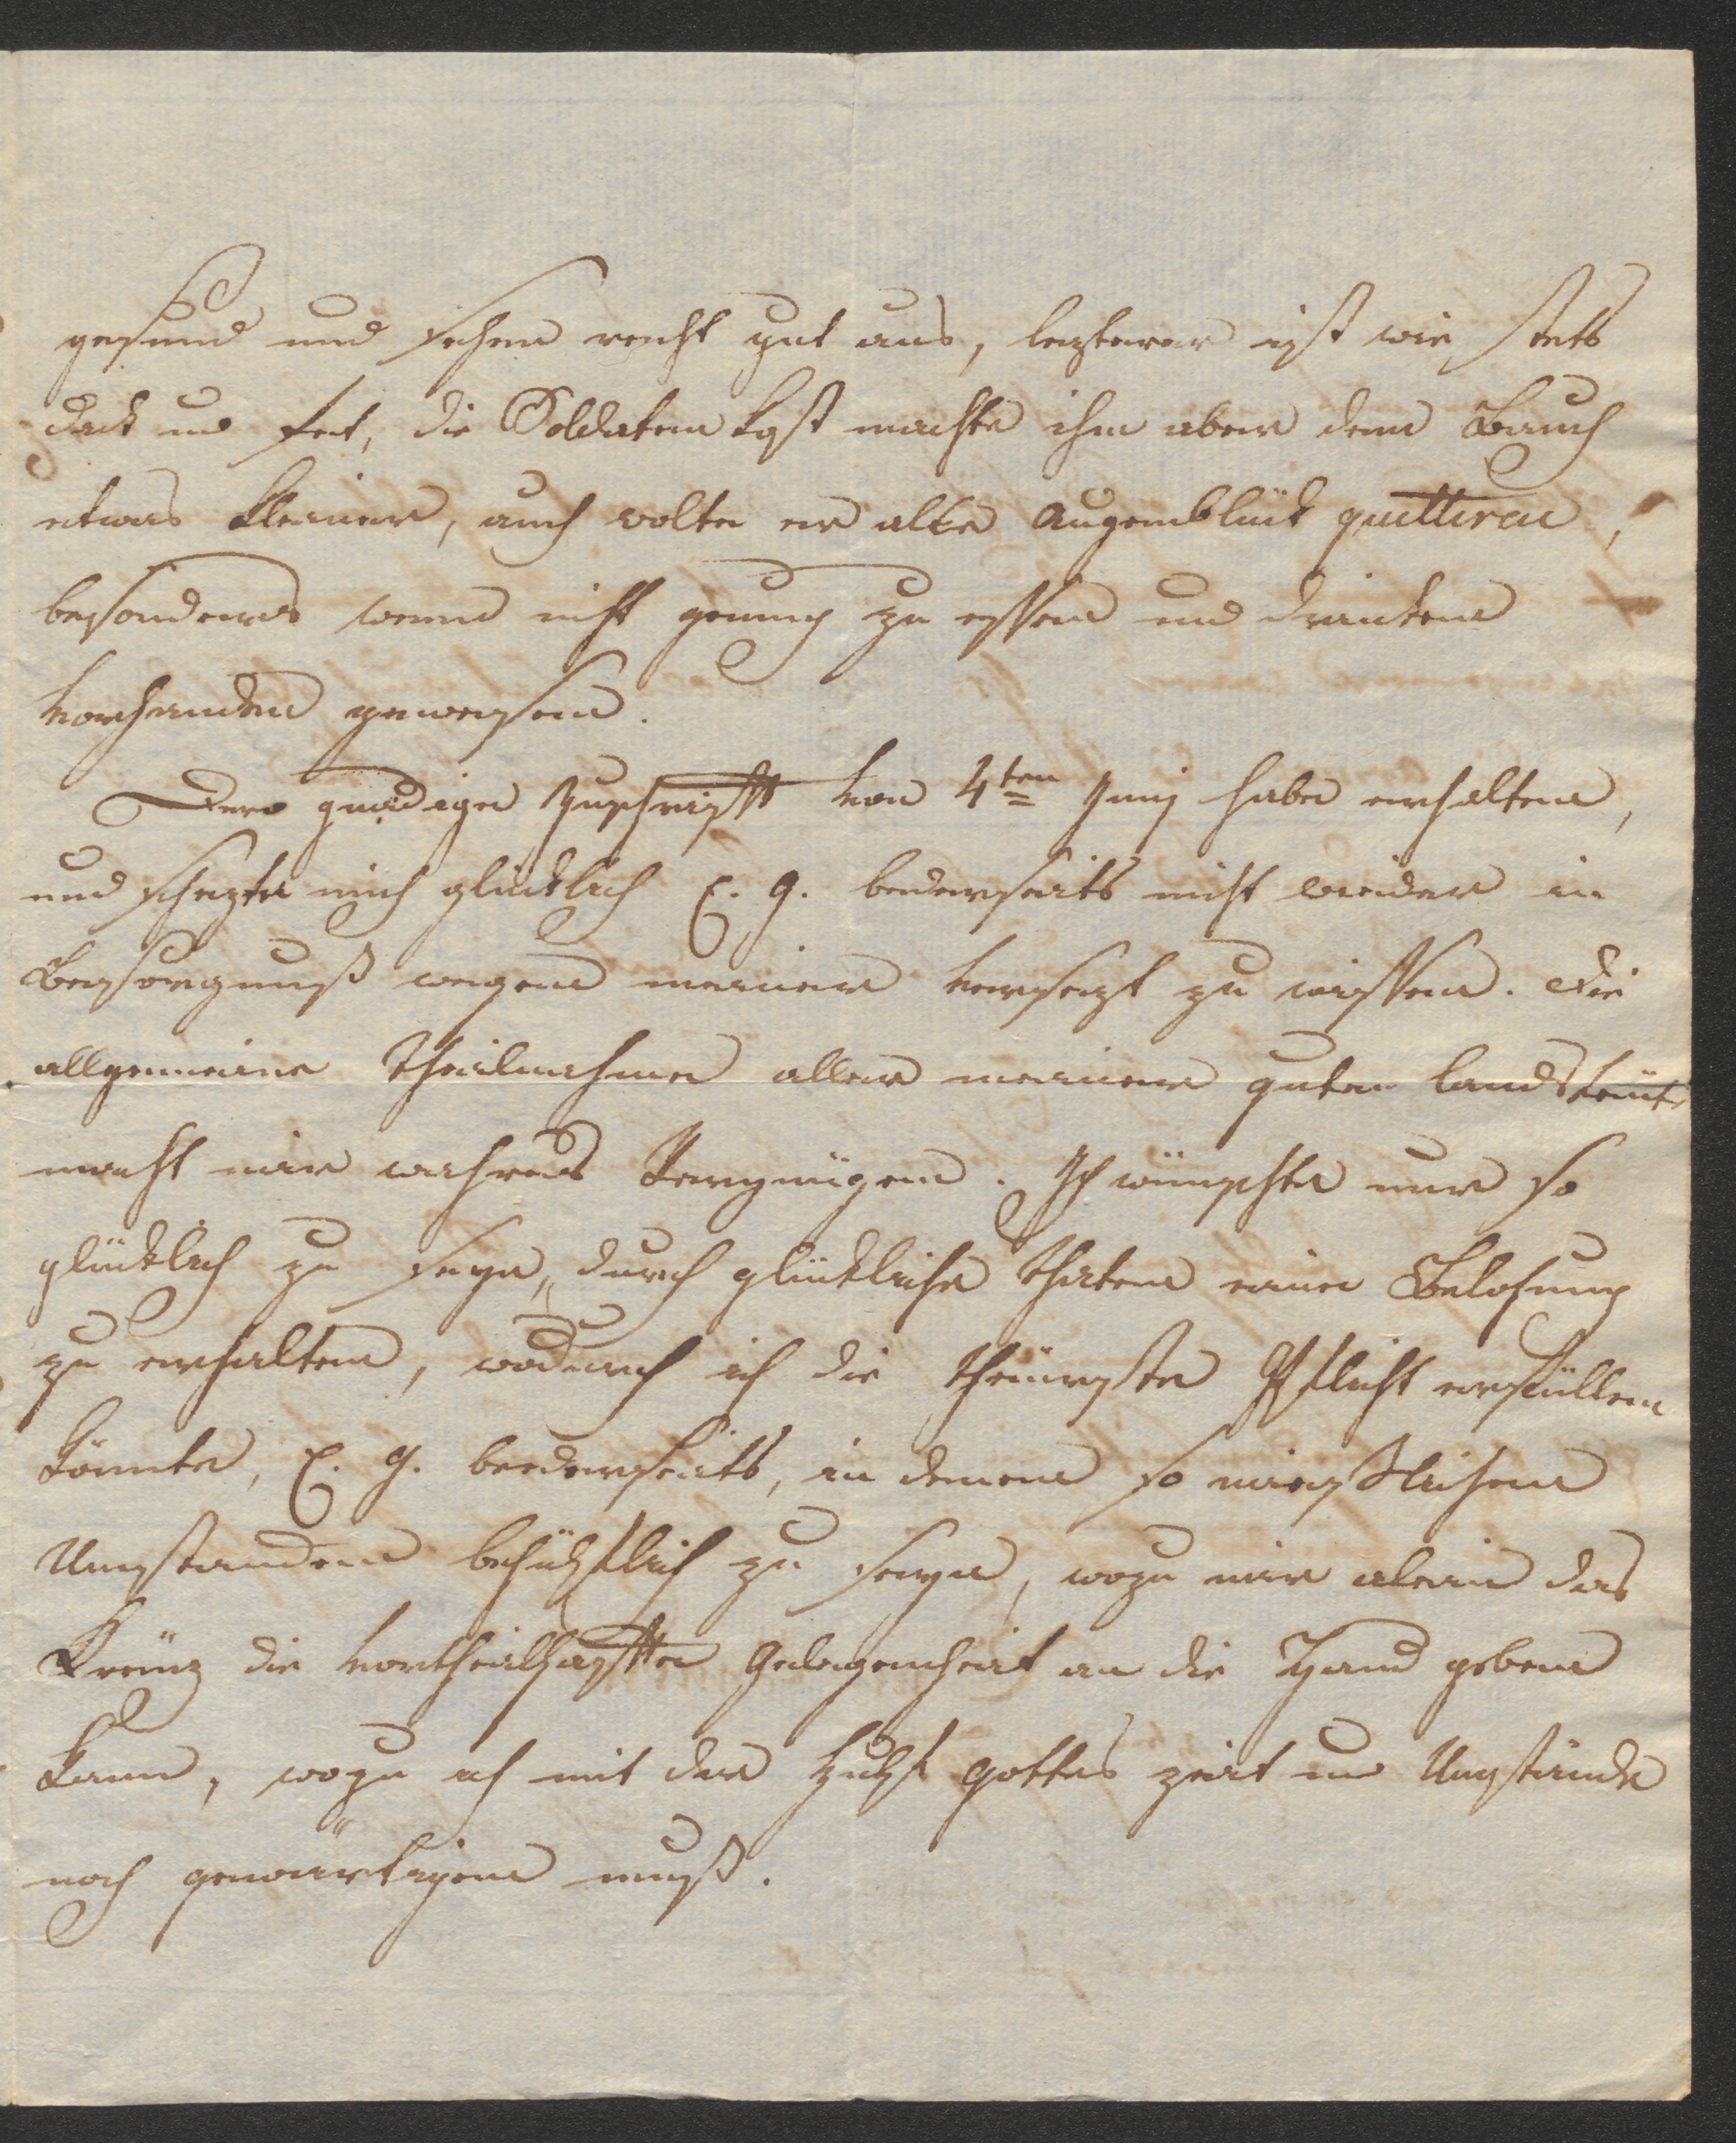 gesund und sehen recht gut aus, lezterer ist wie stets
dick und fet, die Soldaten Kost machte ihm aber den Bauch
etwas kleiner, auch wolte er alle Augenblick quittiren,
besonders wenn nicht genug zu essen und drinken
vorhanden gewesen.
Dero gnädige Zuschrifft von 4ten Junij habe erhalten,
und schezte mich glücklich E. G. bederseits nicht wieder in
Besorgnuß wegen meiner versezt zu wissen. Die
allgemeine theilnahme aller meiner guten landsleüte
macht mir wahres Vergnügen. Ich wünschte nur so
glücklich zu seyn, durch glückliche thaten eine Belohung
zu erhalten, wodurch ich die theürste Pflicht erfüllen
könnte, E. G. bederseits, in denen so mieslichen
Umstanden behülflich zu seyn, wozu mir alein das
Kreüz die vortheilhaffte Gelegenheit an die Hand geben
kann, wozu ich mit der Hülf Gottes zeit und Umstände
noch gewärtigen muß.